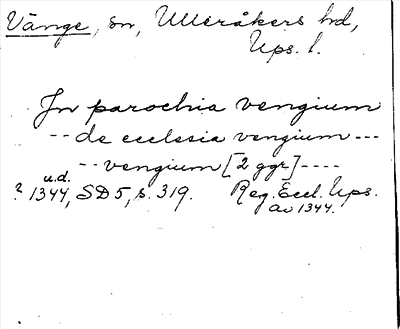 Vänge, sn, Ulleråkers hd,
Ups. l.
In parochia vengium
-- de ecclesia vengium ---
-- vengium [2 ggr] ----
u.d.
? 1344, SD 5, s. 319. Reg. Eccl. Ups.
av 1344.